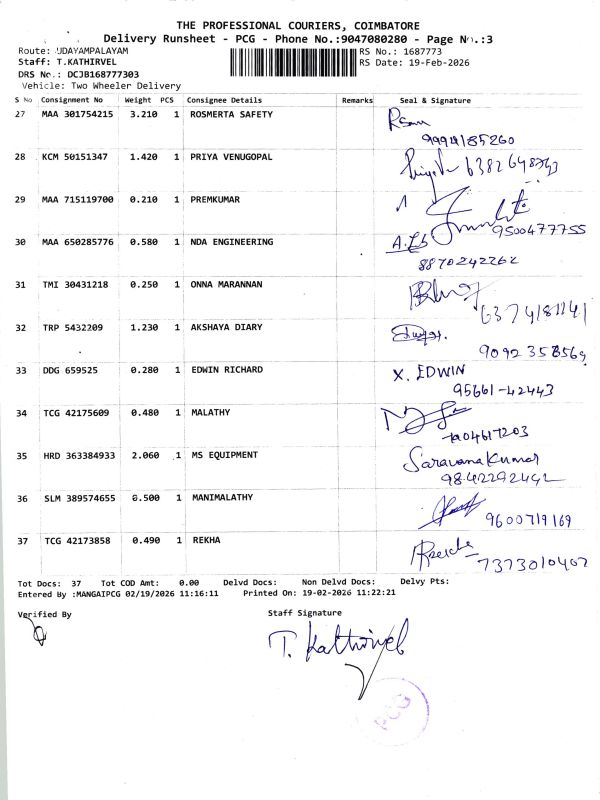 THE PROFESSIONAL COURIERS, COIMBATORE
Delivery Runsheet - PCG - Phone No.:9047080280 - Page No.:3
Route: UDAYAMPALAYAM RS No.: 1687773
Staff: T.KATHIRVEL RS Date: 19-Feb-2026
DRS No.: DCJB168777303
Vehicle: Two Wheeler Delivery
S No Consignment No Weight PCS Consignee Details Remarks Seal & Signature
27 MAA 301754215 3.210 1 ROSMERTA SAFETY
9994185260
28 KCM 50151347 1.420 1 PRIYA VENUGOPAL
29 MAA 715119700 0.210 1 PREMKUMAR
9500477755
30 MAA 650285776 0.580 1 NDA ENGINEERING
8870242262
31 TMI 30431218 0.250 1 ONNA MARANNAN
6374181141
32 TRP 5432209 1.230 1 AKSHAYA DIARY
9092358569
33 DDG 659525 0.280 1 EDWIN RICHARD X. EDWIN
95661-42443
34 TCG 42175609 0.480 1 MALATHY
35 HRD 363384933 2.060 1 MS EQUIPMENT Saravana Kumar
9842292492
36 SLM 389574655 0.500 1 MANIMALATHY
9600719169
37 TCG 42173858 0.490 1 REKHA
7373010407
Tot Docs: 37 Tot COD Amt: 0.00 Delvd Docs: Non Delvd Docs: Delvy Pts:
Entered By :MANGAIPCG 02/19/2026 11:16:11 Printed On: 19-02-2026 11:22:21
Verified By Staff Signature
T. Kathirvel
PCG